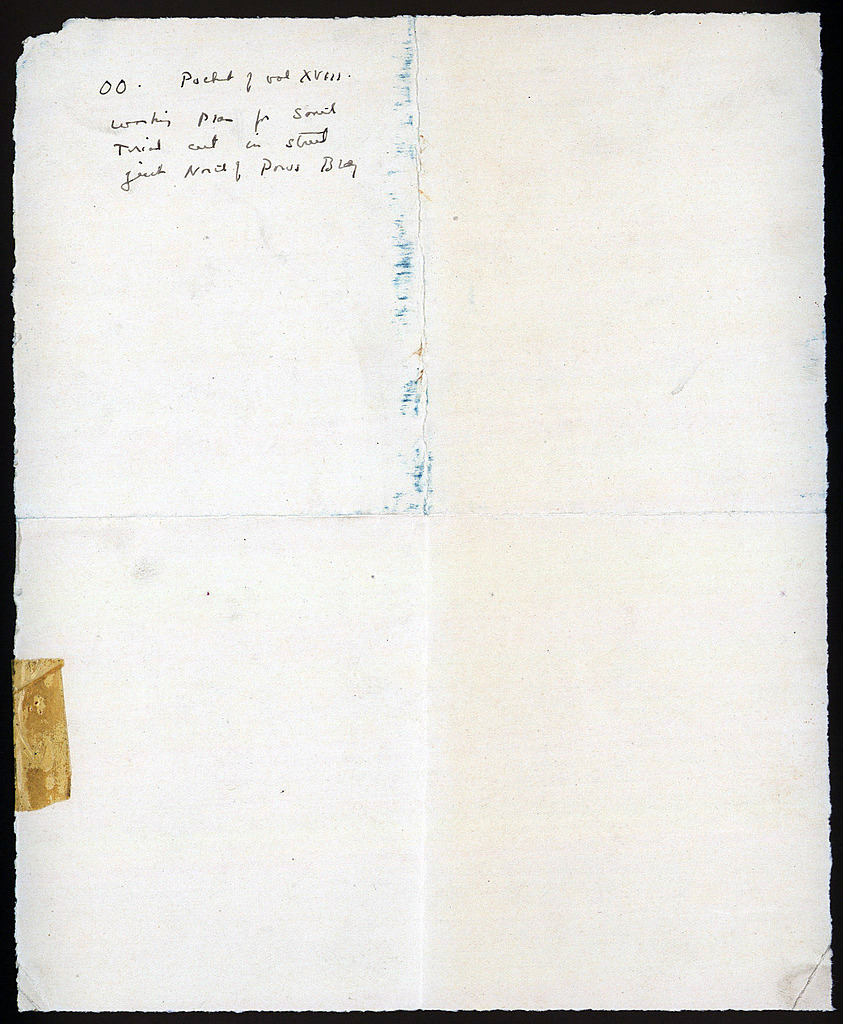 OO. Pocket of vol XVIII.
Working Plan for South
Trial cut in street
just North of Powis Bldg